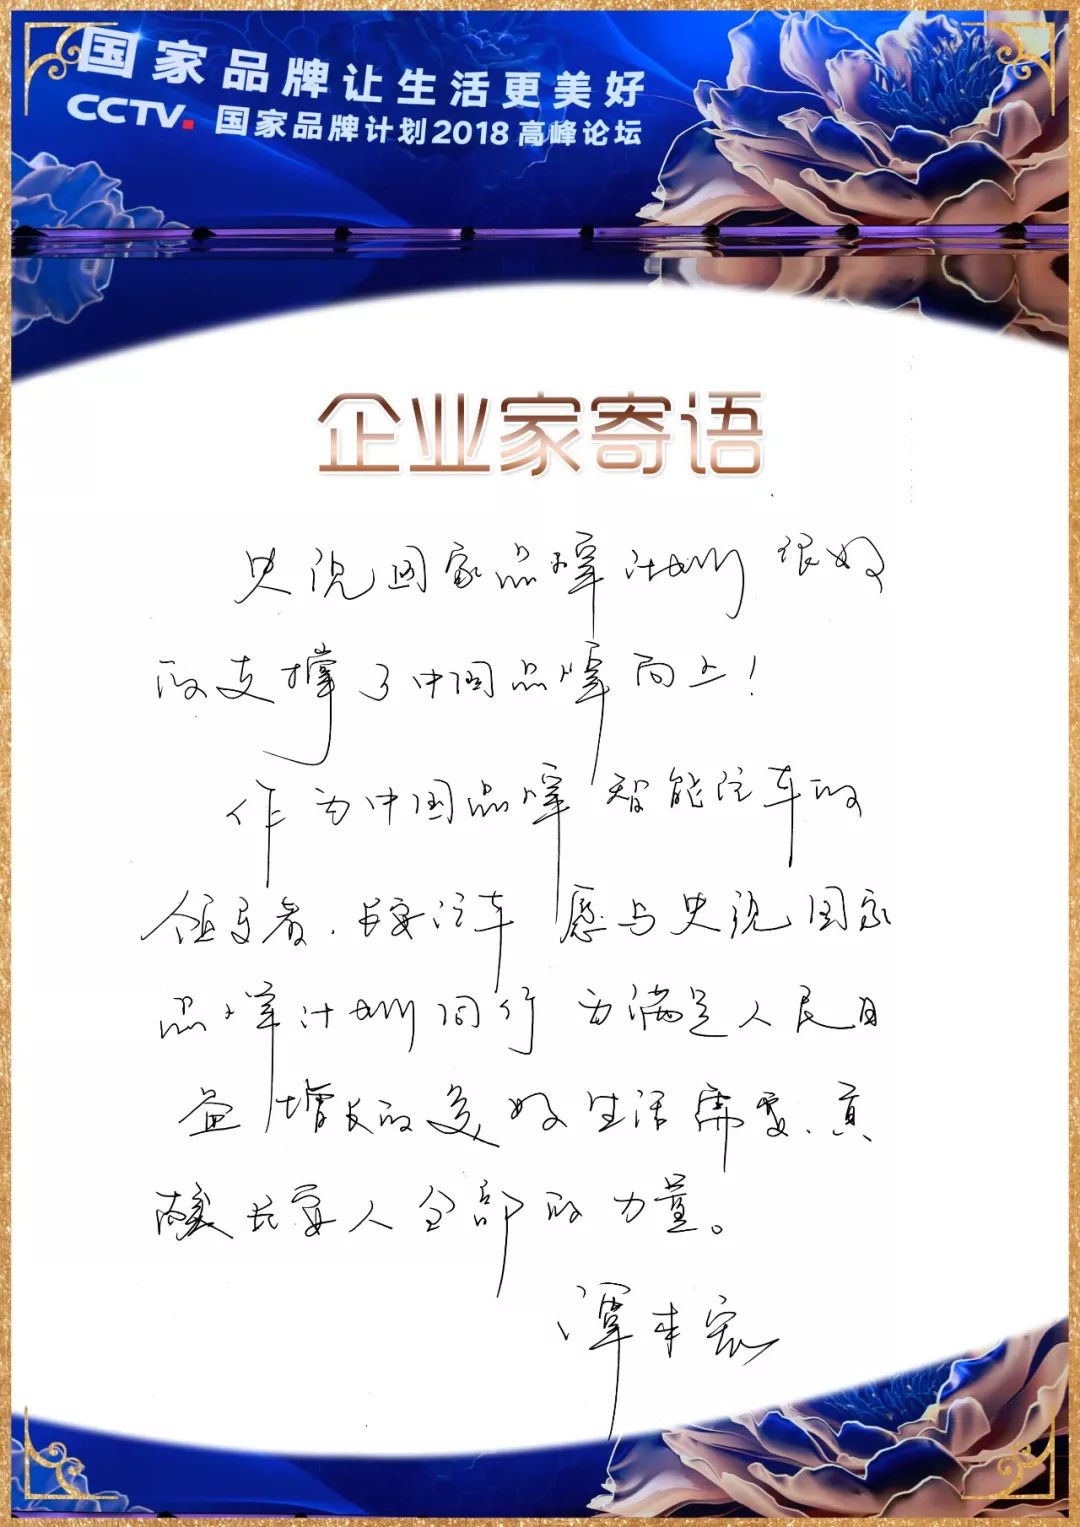 国家品牌让生活更美好
CCTV. 国家品牌计划2018高峰论坛
企业家寄语
央视国家品牌计划很好
的支撑了中国品牌向上！
作为中国品牌智能汽车的
领导者，长安汽车愿与央视国家
品牌计划同行 为满足人民日
益增长的美好生活需要、贡
献长安人全部的力量。
谭本宏